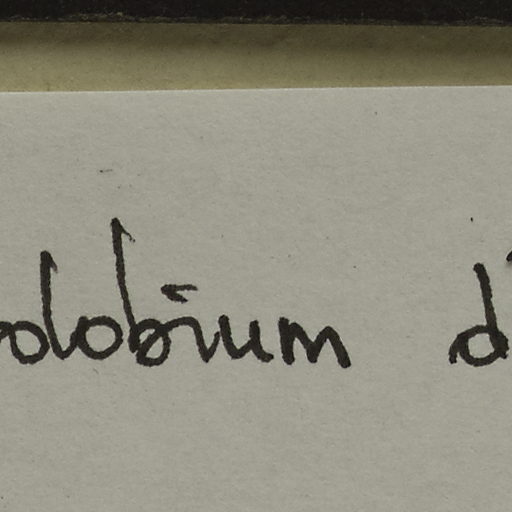 olobium d